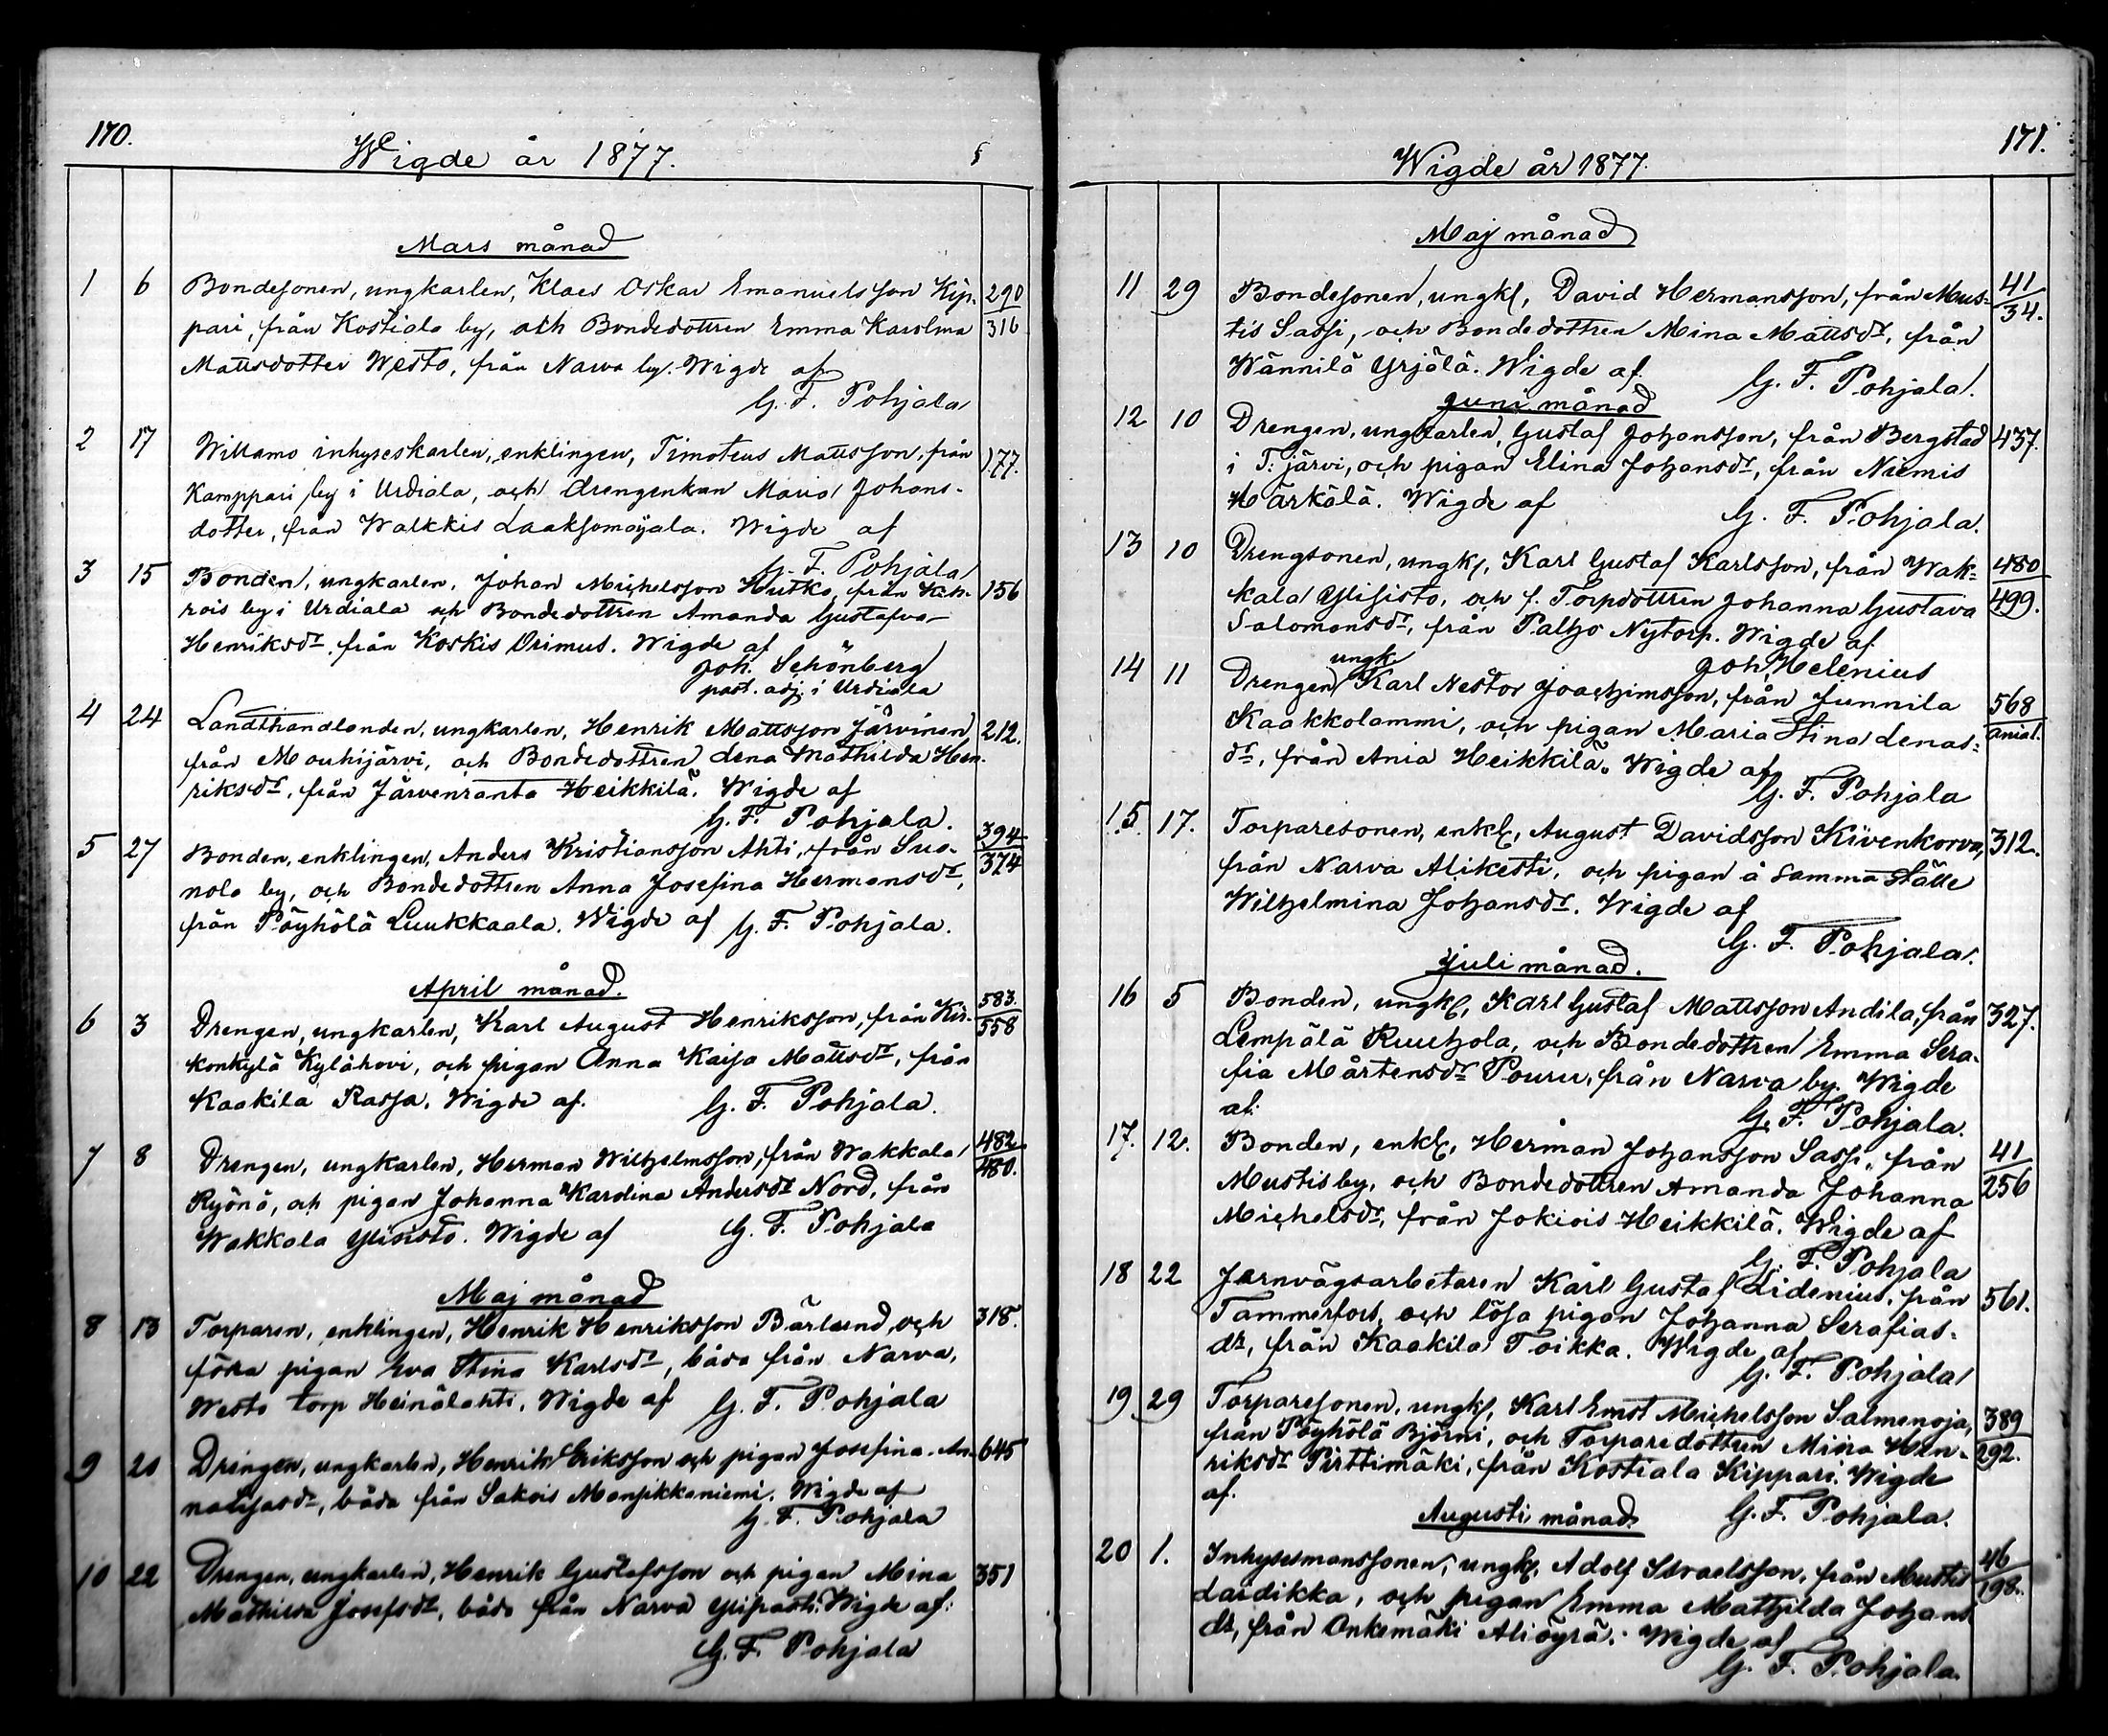 170.
Wigde år 1877.
Mars månad
1 6 Bondesonen, ungkarlen, Klaes Oskar Emanuelsson Kip- 290
pari, från Kostiala by, och Bondedottren Emma Karolina 316
Mattsdotter Westo, från Narva by. Wigde af
G. F. Pohjala
2 17 Willamo inhyseskarlen, enklingen, Timoteus Mattsson, från 177.
Kamppari by i Urdiala, och drengenkan Maria Johans-
dotter, från Walkkis Laaksomaijala. Wigde af
G. F. Pohjala
3 15 Bonden, ungkarlen, Johan Michelsson Hutko, från Keh- 156
rois by i Urdiala och Bondedottren Amanda Gustafva
Henriksdr. från Koskis Orimus. Wigde af
Joh. Schönberg
past. adj. i Urdiala
4 24 Landthandlanden, ungkarlen, Henrik Mattsson Järvinen 212.
från Mouhijärvi, och Bondedottren Lena Mathilda Hen-
riksdr. från Järvenranta Heikkilä. Wigde af
G. F. Pohjala.
5 27 Bonden, enklingen, Anders Kristiansson Ahti, från Suo- 394
nola by, och Bondedottren Anna Josefina Hermansdr, 374
från Pöyhölä Luukkaala. Wigde af G. F. Pohjala.
April månad.
6 3 Drengen, ungkarlen, Karl August Henriksson, från Kir- 583.
konkylä Kylähovi, och pigan Anna Kaisa Mattsdr, från 558
Kaakila Rassa. Wigde af. G. F. Pohjala.
7 8 Drengen, ungkarlen, Herman Wilhelmsson, från Wakkala 482
Ryönä, och pigan Johanna Karolina Andersdr Nord, från 480.
Wakkala Ylisisto. Wigde af G. F. Pohjala
Maj månad
8 13 Torparen, enklingen, Henrik Henriksson Bärlund, och 318.
föra pigan Eva Stina Karlsdr, båda från Narva,
Westo torp Heinälahti. Wigde af G. F. Pohjala
9 20 Drengen, ungkarlen, Henrik Eriksson och pigan Josefina An- 645
naliasdr, båda från Sakois Mansikkaniemi. Wigde af
G. F. Pohjala
10 22 Drengen, ungkarlen, Henrik Gustafsson och pigan Mina 351
Mathilda Josefsdr, båda från Narva Ylipasti. Wigde af:
G. F. Pohjala
171.
Wigde år 1877.
Maj månad
11 29 Bondesonen, ungkl, David Hermansson, från Mus- 41
tis Sassi, och Bondedottren Mina Mattsdr, från 34.
Wännilä Yrjälä. Wigde af. G. F. Pohjala.
Juni månad
12 10 Drengen, ungkarlen, Gustaf Johansson, från Bergstad 437.
i T:järvi, och pigan Elina Johansdr, från Niemis
Härkälä. Wigde af
G. F. Pohjala.
13 10 Drengsonen, ungk, Karl Gustaf Karlsson, från Wak- 480
kala Ylisisto, och f. Torpdottren Johanna Gustava 499.
Salomonsdr, från Palho Nytorp. Wigde af
Joh, Helenius
14 11 Drengen ungk. Karl Nestor Joachimsson, från Junnila 568
Kaakkolammi, och pigan Maria Stina Lenas- anial.
dr, från Ania Heikkilä. Wigde af
G. F. Pohjala
15 17. Torparesonen, enkl, August Davidsson Kivenkorva, 312.
från Narva Alikesti, och pigan å samma ställe
Wilhelmina Johansdr. Wigde af
G. F. Pohjala.
Juli månad.
16 5 Bonden, ungkl, Karl Gustaf Mattsson Andila, från 327.
Lempälä Kuuhola, och Bondedottren Emma Sera-
fia Mårtensdr Pouru, från Narva by. Wigde
af: G. F. Pohjala.
17. 12. Bonden, enkl, Herman Johansson Sassi, från 41
Mustis by, och Bondedottren Amanda Johanna 256
Michelsdr, från Jokiois Heikkilä. Wigde af
G. F. Pohjala
18 22 Jernvägsarbetaren Karl Gustaf Lidenius, från 561.
Tammerfors, och lösa pigan Johanna Serafias-
dr, från Kaakila Toikka. Wigde af
G. F. Pohjala
19 29 Torparesonen, ungk, Karl Ernst Michelsson Salmenoja, 389
från Pöyhölä Björni, och Torparedottren Mina Hen- 292.
riksdr Pirttimäki, från Kostiala Kippari. Wigde
af. G. F. Pohjala.
Augusti månad.
20 1. Inhysesmanssonen, ungkl, Adolf Israelsson, från Mustis 46
Laidikka, och pigan Emma Mathilda Johans 198.
dr, från Onkemäki Aliöyrä. Wigde af
G. F. Pohjala.